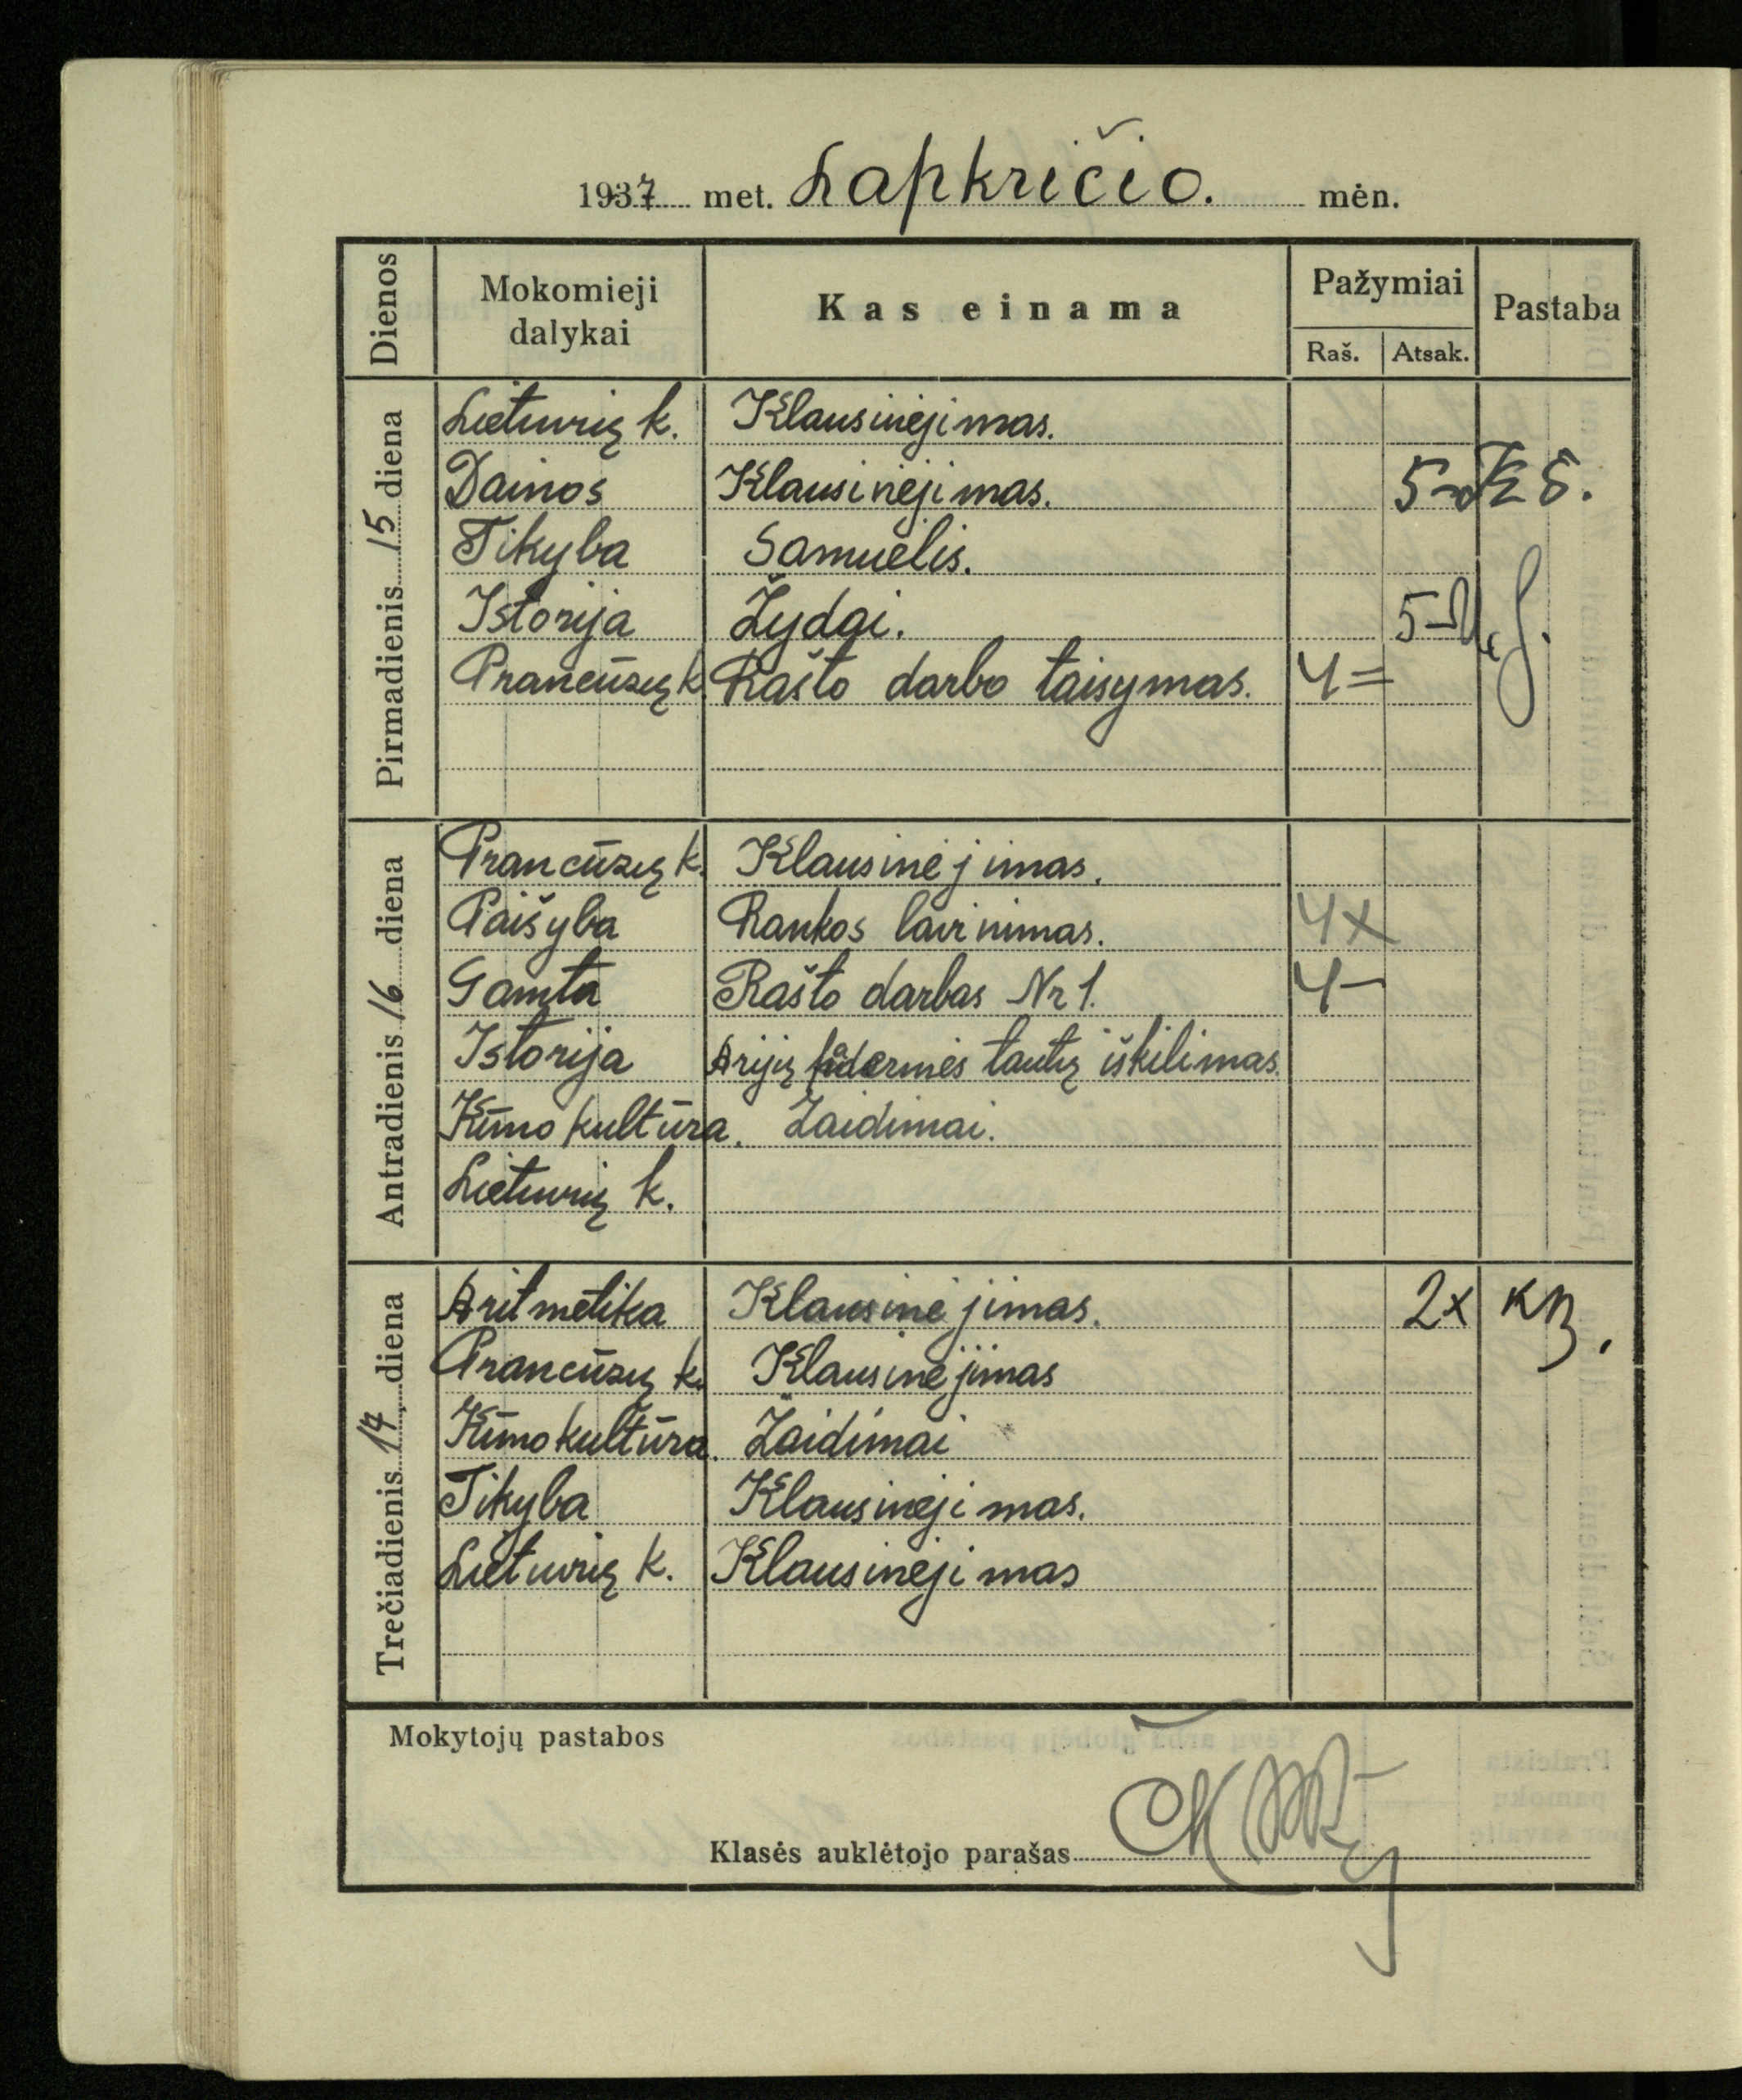 1937 met. Lapkričio. mėn.
Dienos Mokomieji dalykai Kas einama Pažymiai Raš. Atsak. Pastaba
Pirmadienis 15 diena
Lietuvių k. Klausinėjimas.
Dainos Klausinėjimas. 5-
Tikyba Samuelis.
Istorija Žydai. 5-
Prancūzų k. Rašto darbo taisymas. 4=
Antradienis 16 diena
Prancūzų k. Klausinėjimas.
Paišyba Rankos lavinimas. 4x
Gamta Rašto darbas Nr 1. 4-
Istorija Arijų tautų iškilimas.
Kūno kultūra. Žaidimai.
Lietuvių k.
Trečiadienis 17 diena
Aritmetika Klausinėjimas. 2x KB.
Prancūzų k. Klausinėjimas
Kūno kultūra. Žaidimai
Tikyba Klausinėjimas.
Lietuvių k. Klausinėjimas
Mokytojų pastabos
Klasės auklėtojo parašas